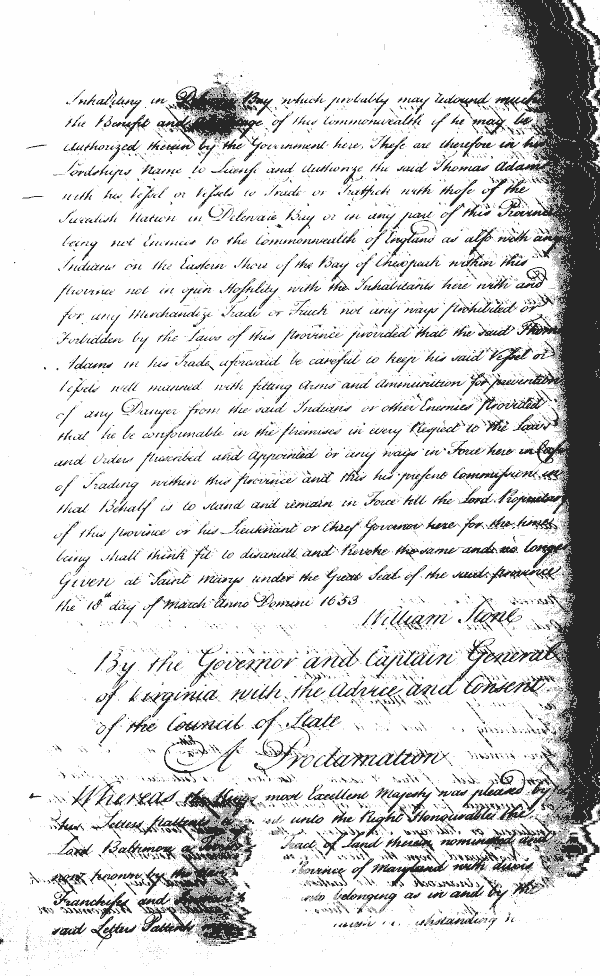 Inhabiting in Delevaie Bay which probably may redound much
the Benefit and of this Commonwealth if he may be
Authorized therein by the Government here, These are therefore in his
Lordships Name to License and Authorize the said Thomas Adams
with his Vessel or Vessels to Trade or Traffick with those of the
Swedish Nation in Delevaie Bay or in any part of this Province
being not Enemies to the Commonwealth of England as also with any
Indians on the Eastern Shore of the Bay of Chesopeack within this
province not in open Hostility with the Inhabitants here with and
for any Merchandize Trade or Truck not any ways prohibited or
Forbidden by the Laws of this province provided that the said Thomas
Adams in his Trade aforesaid be careful to keep his said Vessel or
Vessels well manned with fitting Arms and ammunition for prevention
of any Danger from the said Indians or other Enemies provided
that he be conformable in the premises in every Respect to the Laws
and Orders prescribed and Appointed or any ways in Force here in Case
of Trading within this province and this his present Commission in
that Behalf is to stand and remain in Force till the Lord Proprietary
of this province or his Lieutenant or Chief Governor here for the time
being shall think fit to disanull and Revoke the same and no longer
Given at Saint marys under the Great Seal of the said province
the 18th day of March Anno Domini 1653
William Stone
By the Governor and Captain General
of Virginia with the Advice and Consent
of the Council of State
A Proclamation
Whereas the Kings most Excellent Majesty was pleased by
his Letters Pattents unto the Right Honourable the
Lord Baltimore a Tract of Land therein nominated and
now known by the Province of Maryland with divers
Franchises and belonging as in and by the
said Letters Pattents